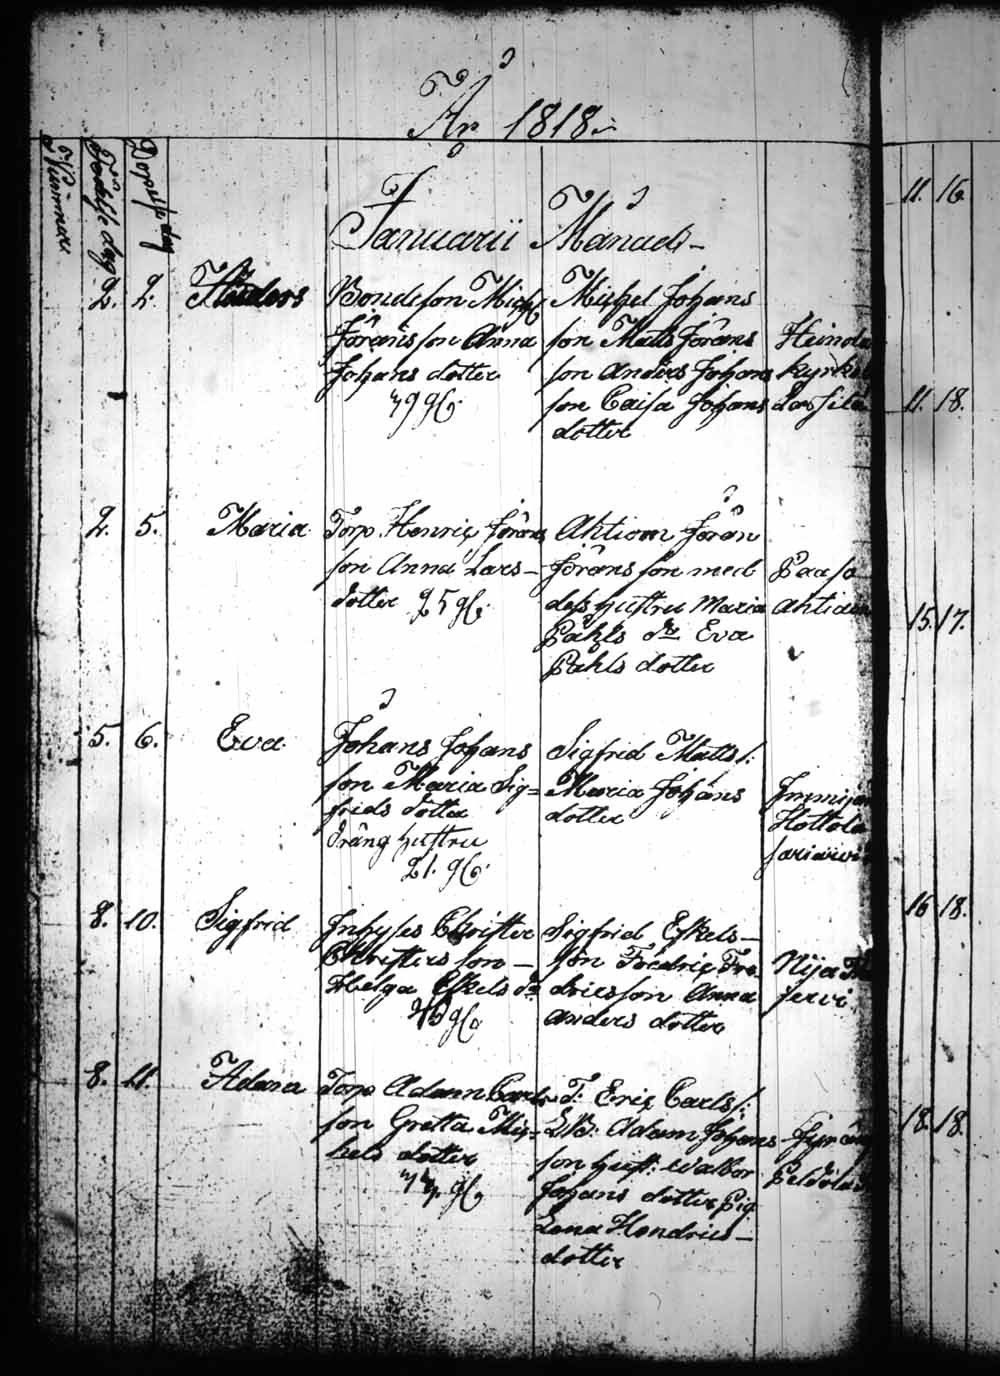 År 1818.
Nummer
Födelse dag
Döpelse dag
Januarii Månad
2. 2. Anders
Bondeson Mich
Jöransson Anna
Johans dotter
29 år
Michel Johans
son Matts Jörans
son Anders Johans
son Caisa Johans
dotter
Heinola
kyrko
Lassila
2. 5. Maria
Torp. Henric Jörans
son Anna Lars-
dotter 25 år
Ahtiain Jöran
Jörans son med
dess hustru Maria
Påhls dr Eva
Påhls dotter
Paaso
Ahtiain
5. 6. Eva
Johans Johans
son Maria Sig=
frids dotter
dräng hustru
21. år.
Sigfrid Matts s:
Maria Johans
dotter
Immijä
Hottola
8. 10. Sigfrid
Inhyses Christer
Christers son -
Helga Eskels dr
Sigfrid Eskels-
son Fredric Fre-
drics son Anna
Anders dotter
Nija
jervi
8. 11. Adam
Torp Adam Carls
son Gretta Mic=
kels dotter
T: Eric Carls s:
Adam Johans
son hust: Walbor
Johans dotter Pig
Lena Hendrics-
dotter
Peldola
11. 16.
11. 18.
15. 17.
16 18.
18. 18.